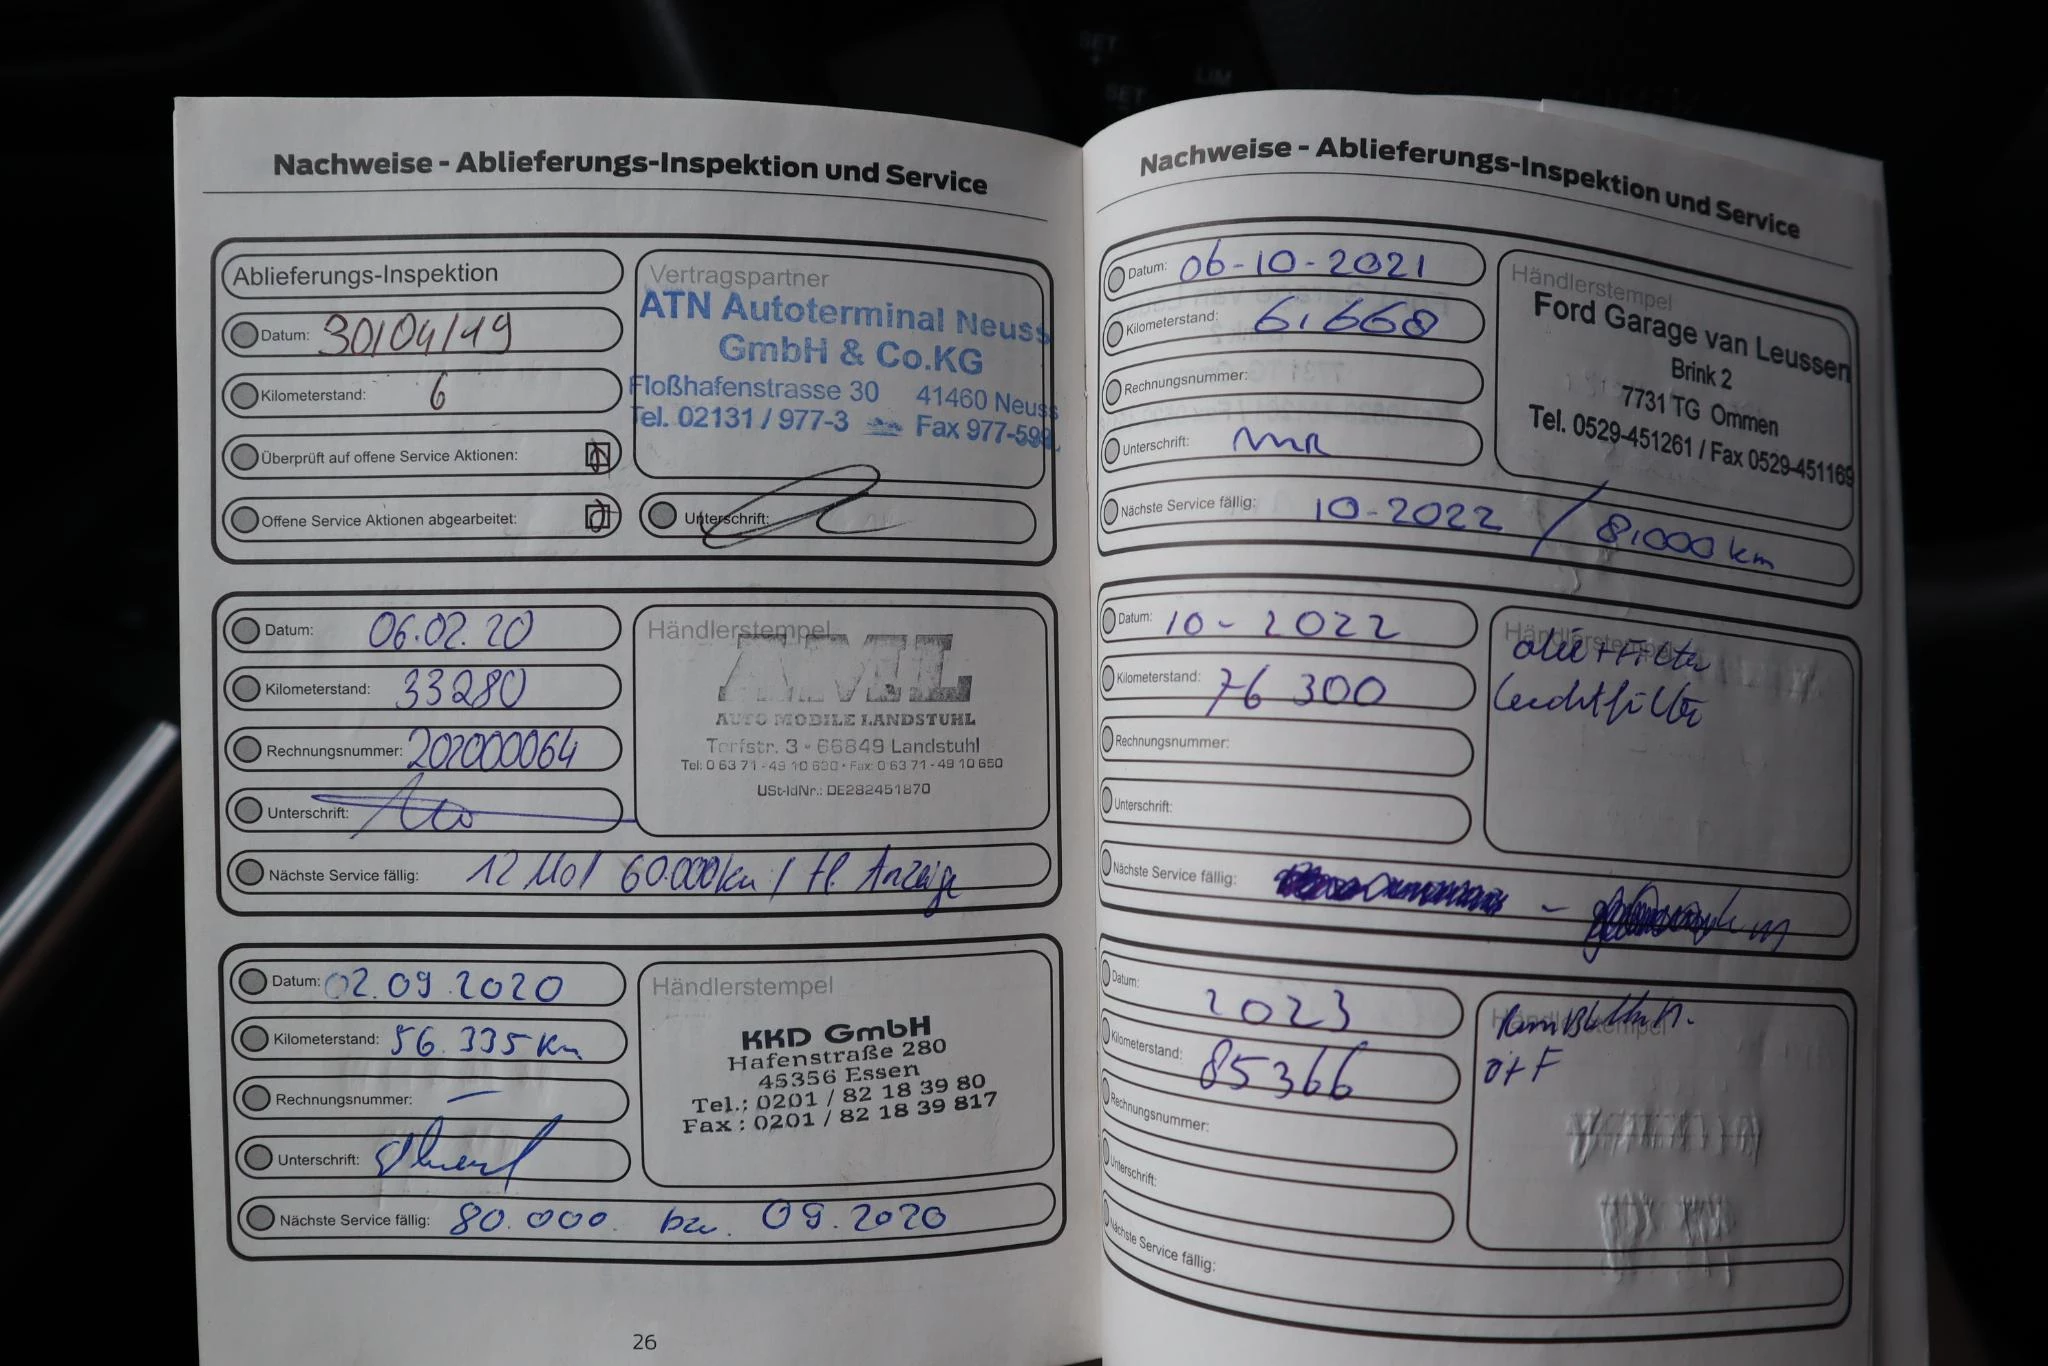 SET
+
LIM
SET
Nachweise - Ablieferungs-Inspektion und Service
Ablieferungs-Inspektion
Datum: 30/04/19
Kilometerstand: 6
Überprüft auf offene Service Aktionen:
Offene Service Aktionen abgearbeitet:
Vertragspartner
ATN Autoterminal Neuss
GmbH & Co.KG
Floßhafenstrasse 30 41460 Neuss
Tel. 02131 / 977-3 Fax 977-599
Unterschrift:
Datum: 06.02.20
Kilometerstand: 33280
Rechnungsnummer: 202000064
Unterschrift:
Nächste Service fällig: 12 Mo / 60.000km / lt. Anzeige
Händlerstempel
AML
AUTO MOBILE LANDSTUHL
Torfstr. 3 - 66849 Landstuhl
Tel: 0 63 71 - 49 10 630 • Fax: 0 63 71 - 49 10 650
USt-IdNr.: DE282451870
Datum: 02.09.2020
Kilometerstand: 56.335 km
Rechnungsnummer: —
Unterschrift:
Nächste Service fällig: 80.000. bzw. 09.2020
Händlerstempel
KKD GmbH
Hafenstraße 280
45356 Essen
Tel.: 0201 / 82 18 39 80
Fax : 0201 / 82 18 39 817
26
Nachweise - Ablieferungs-Inspektion und Service
Datum: 06-10-2021
Kilometerstand: 61.668
Rechnungsnummer:
Unterschrift:
Nächste Service fällig: 10-2022 / 81.000 km
Händlerstempel
Ford Garage van Leussen
Brink 2
7731 TG Ommen
Tel. 0529-451261 / Fax 0529-451169
Datum: 10-2022
Kilometerstand: 76 300
Rechnungsnummer:
Unterschrift:
Nächste Service fällig:
Händlerstempel
olie + Filter
luchtfilter
Datum: 2023
Kilometerstand: 85366
Rechnungsnummer:
Unterschrift:
Nächste Service fällig:
Händlerstempel
O+F